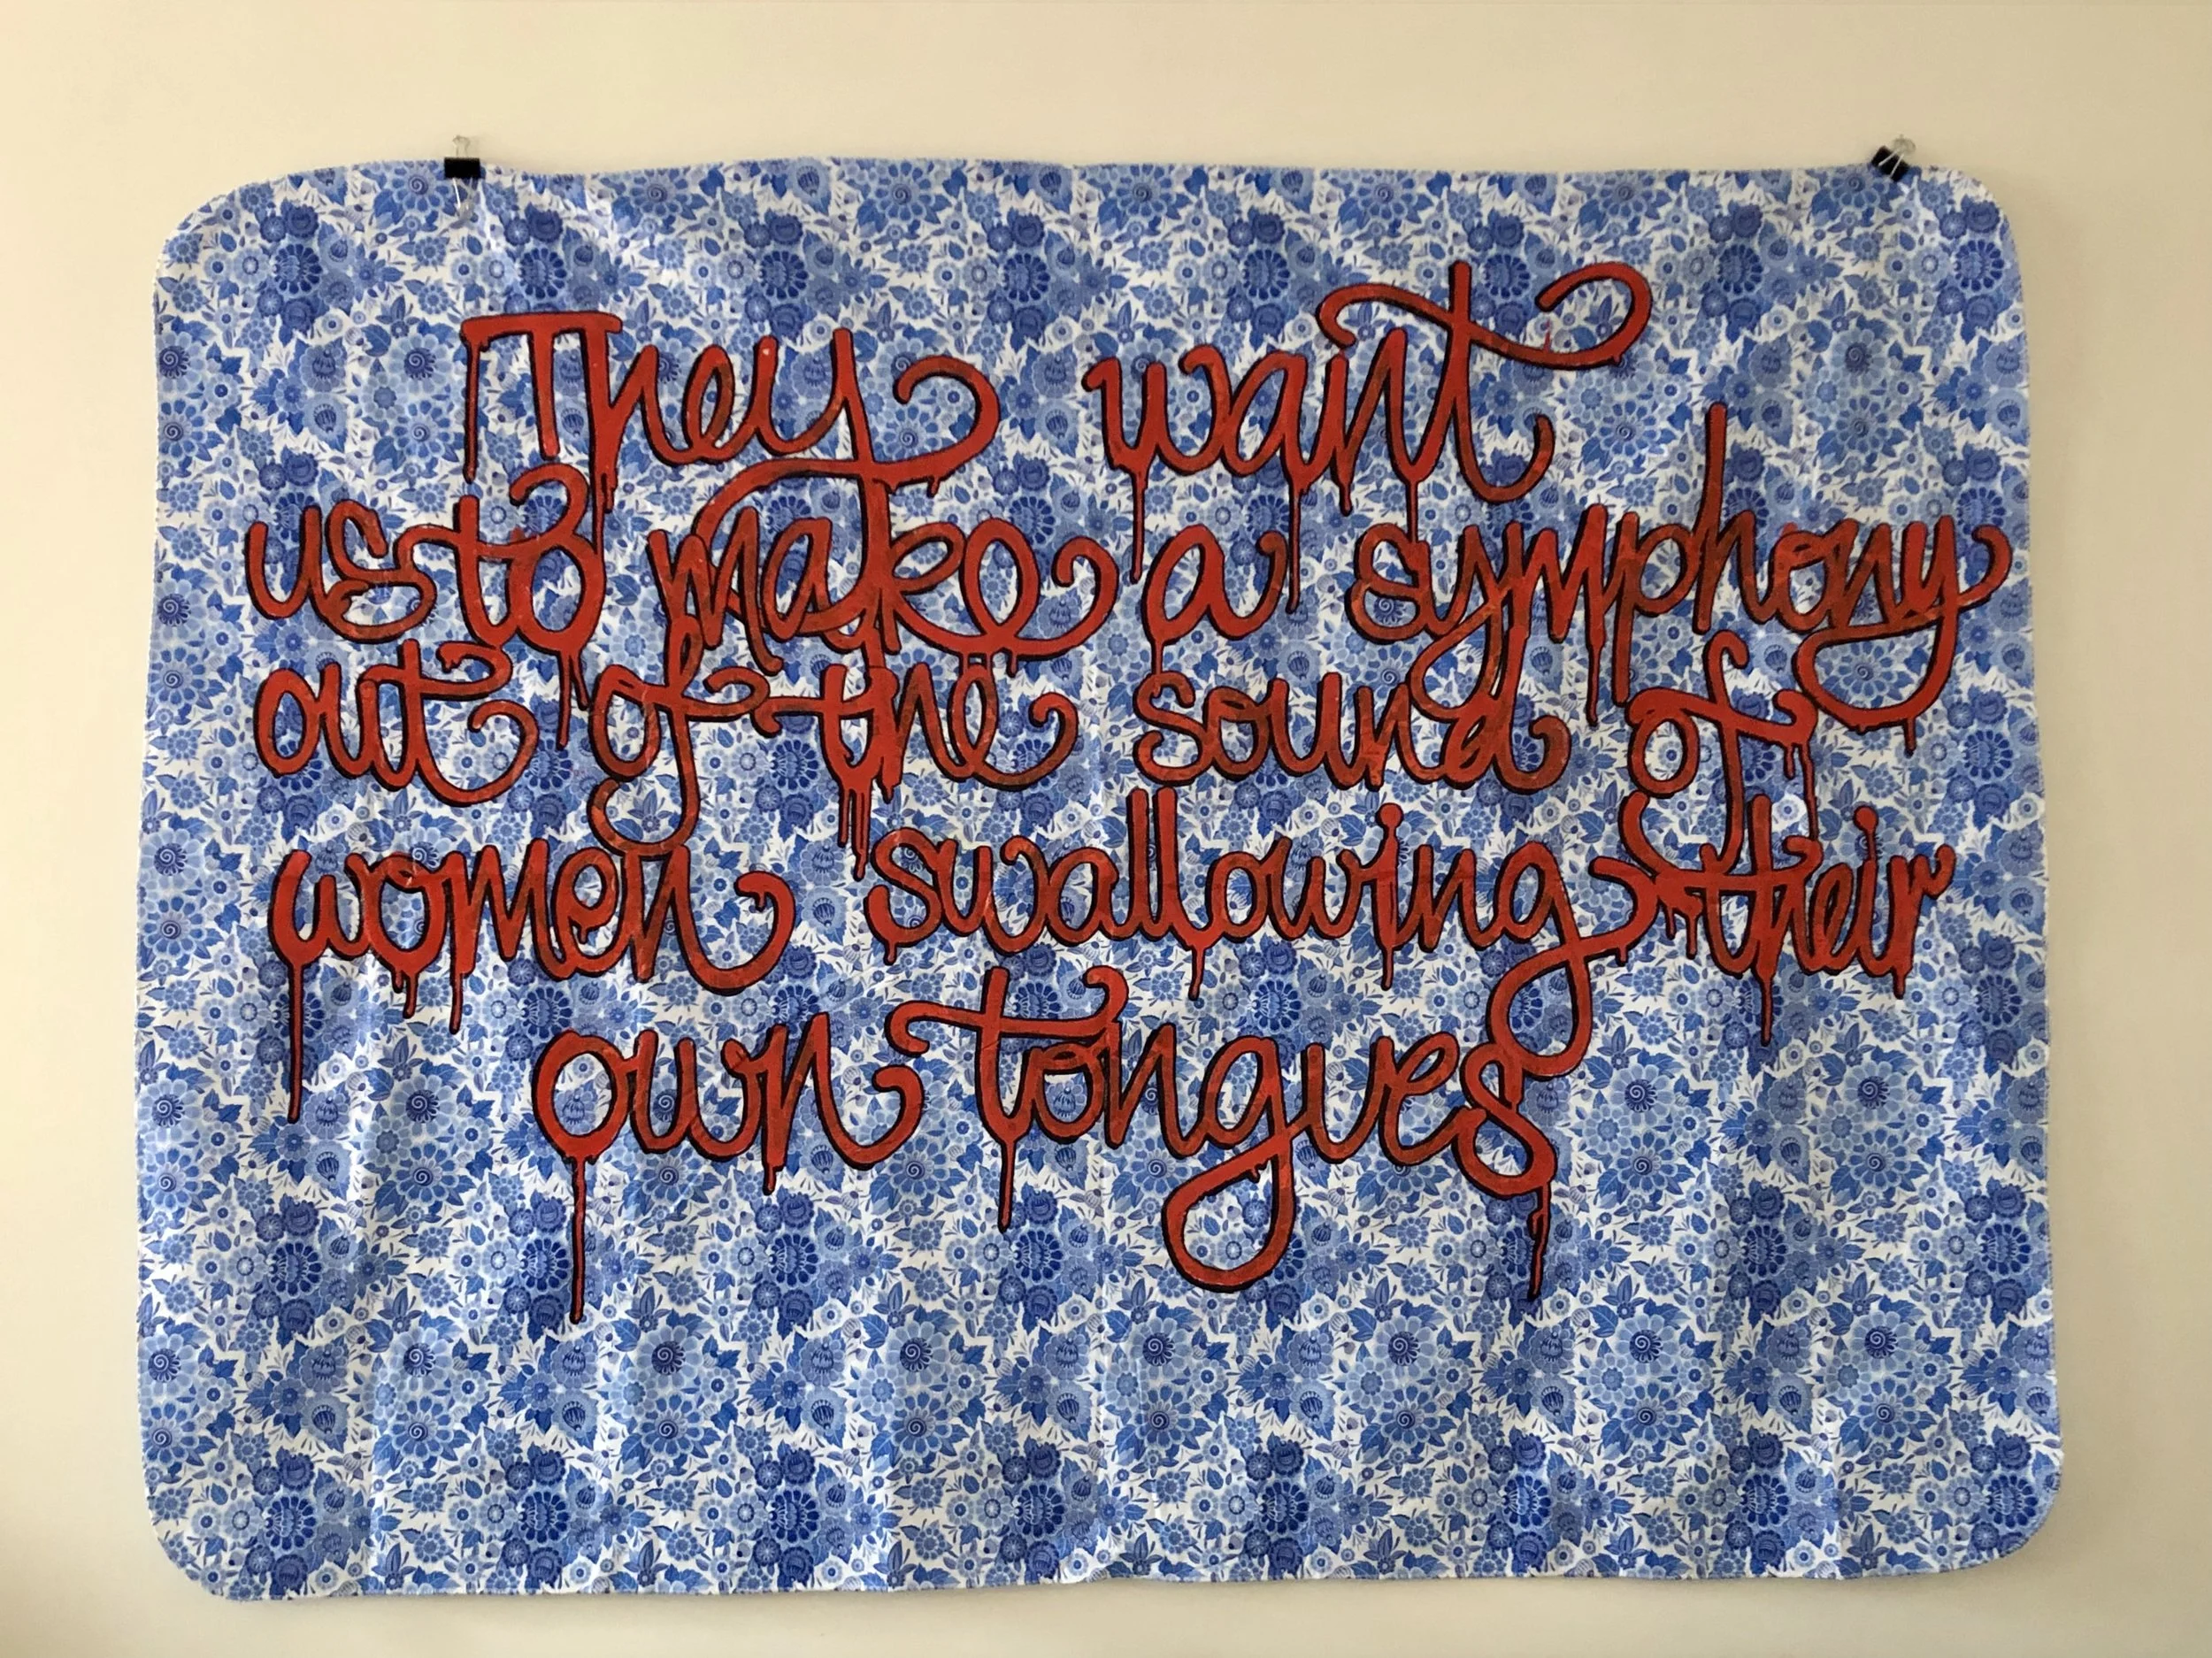 They want
us to make a symphony
out of the sound of
women swallowing their
own tongues